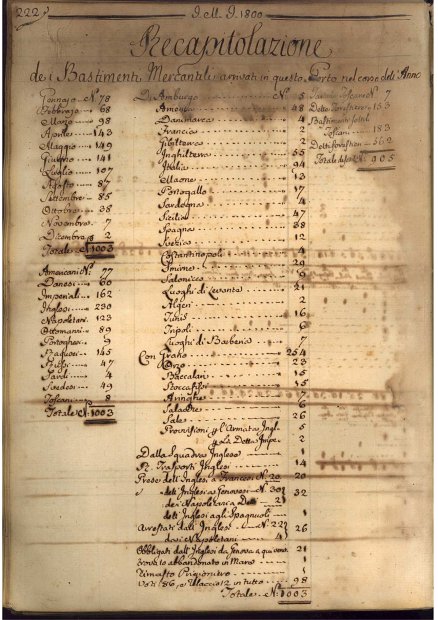 222
J. M. J. 1800
Recapitolazione
de i Bastimenti Mercantili arrivati in questo Porto nel corso dell'Anno
Gennajo N.º 78
Febbrajo 68
Marzo 98
Aprile 143
Maggio 149
Giugno 141
Luglio 107
Agosto 87
Settembre 85
Ottobre 38
Novembre 7
Dicembre 2
Totale N.º 1003
Americani N.º 77
Danesi 60
Imperiali 162
Inglesi 230
Napoletani 123
Ottomanni 89
Portoghesi 9
Ragusei 145
47
Sardi 4
Svedesi 49
Toscani 8
Totale N.º 1003
Da Amburgo N.º 5
America 48
Danimarca 4
Francia 2
Gibilterra 2
Inghilterra 55
Italia 94
Maone 13
Portogallo 17
Sardegna 4
Sicilia 47
Spagna 38
Svezia 12
Costantinopoli 4
Smirne 29
Salonicco 9
Luoghi di Levante 21
Algeri 2
Tunis 16
Tripoli 6
Luoghi di Barberia 7
Con Grano 264
23
Baccalari 15
Stoccafissi 15
Aringhe 7
Salacche 6
Sale 26
Provisioni p. l'Armata Ingl. 5
2
Dalla Squadra Inglese 1
Pr. Trasporti Inglesi 14
Prese dell'Inglesi a Francesi N.º 20 20
dett'Inglesi a Genovesi N.º 30
32
dei Napoletani a Detti 2
dett'Inglesi agli Spagnuoli 1
Arrestati dall'Inglesi N.º 22
26
dai Napoletani 4
Obbligati dall'Inglesi da Genova a qui venire 21
Trovato abbandonato in Mare 1
Rimasto Prigioniero 1
98
Totale N.º 1003
Toscani N.º 7
Detti Forestieri 153
Bastimenti
Toscani 183
Detti forestieri 562
Totale N.º 905